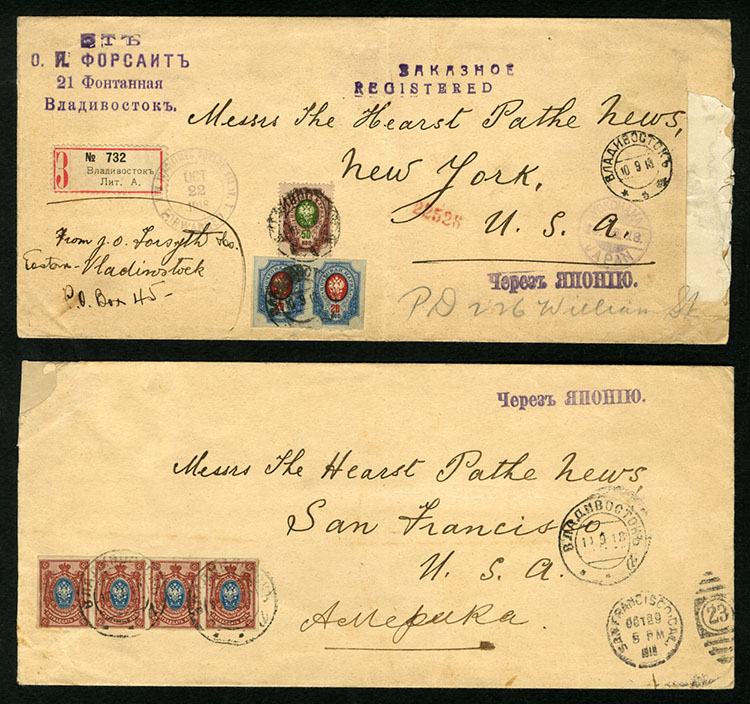 О. И. ФОРСАИТЪ
21 Фонтанная
Владивостокъ.
ЗАКАЗНОЕ
REGISTERED
Messrs The Hearst Pathe News,
New York,
U. S. A.
З
№ 732
Владивостокъ
Лит. А.
OCT
22
1918
ВЛАДИВОСТОКЪ
10 9 18
JAPAN
22526
50
КОП
20
КОП
20
КОП
From J. O. Forsyth Co.
Eastern - Vladivostock
P.O. Box 45 -
Черезъ ЯПОНІЮ.
P.O 226 William St
Черезъ ЯПОНІЮ.
Messrs The Hearst Pathe News
San Francisco
U. S. A.
Америка.
ВЛАДИВОСТОКЪ
11 9 18
SAN FRANCISCO, CAL.
OCT 29
5 PM
1918
23